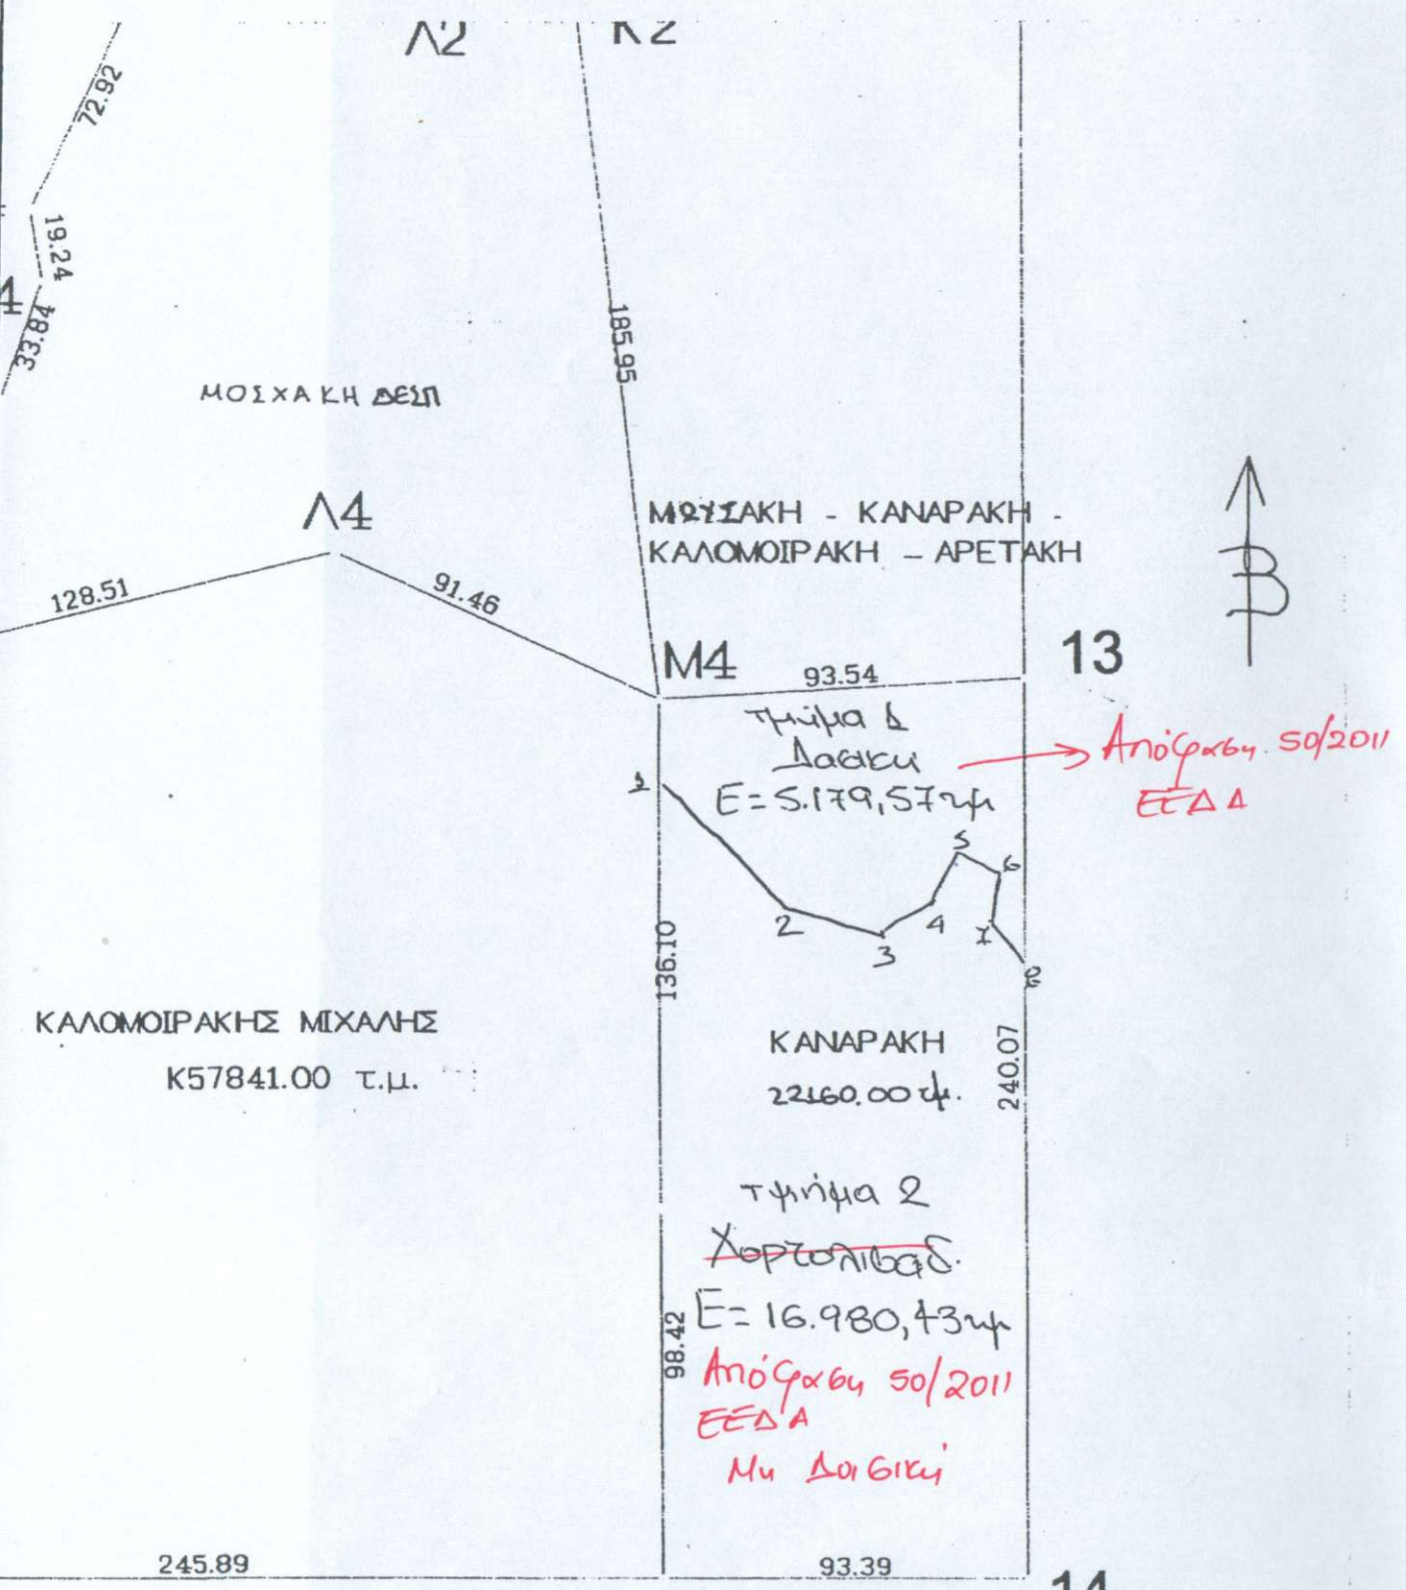 Λ2
Κ2
72.92
19.24
4
33.84
185.95
ΜΟΣΧΑΚΗ ΔΕΣΠ
Λ4
ΜΩΥΣΑΚΗ - ΚΑΝΑΡΑΚΗ -
ΚΑΛΟΜΟΙΡΑΚΗ - ΑΡΕΤΑΚΗ
Β
128.51
91.46
Μ4
93.54
13
τμήμα 1
Δασική
Ε=5.179,57 τμ
Απόφαση 50/2011
ΕΕΔΑ
1
2
3
4
5
6
7
8
136.10
ΚΑΛΟΜΟΙΡΑΚΗΣ ΜΙΧΑΛΗΣ
Κ57841.00 τ.μ.
ΚΑΝΑΡΑΚΗ
22160.00 τμ.
240.07
τμήμα 2
Χορτολιβαδ.
Ε=16.980,43 τμ
98.42
Απόφαση 50/2011
ΕΕΔΑ
Μη Δασική
245.89
93.39
14